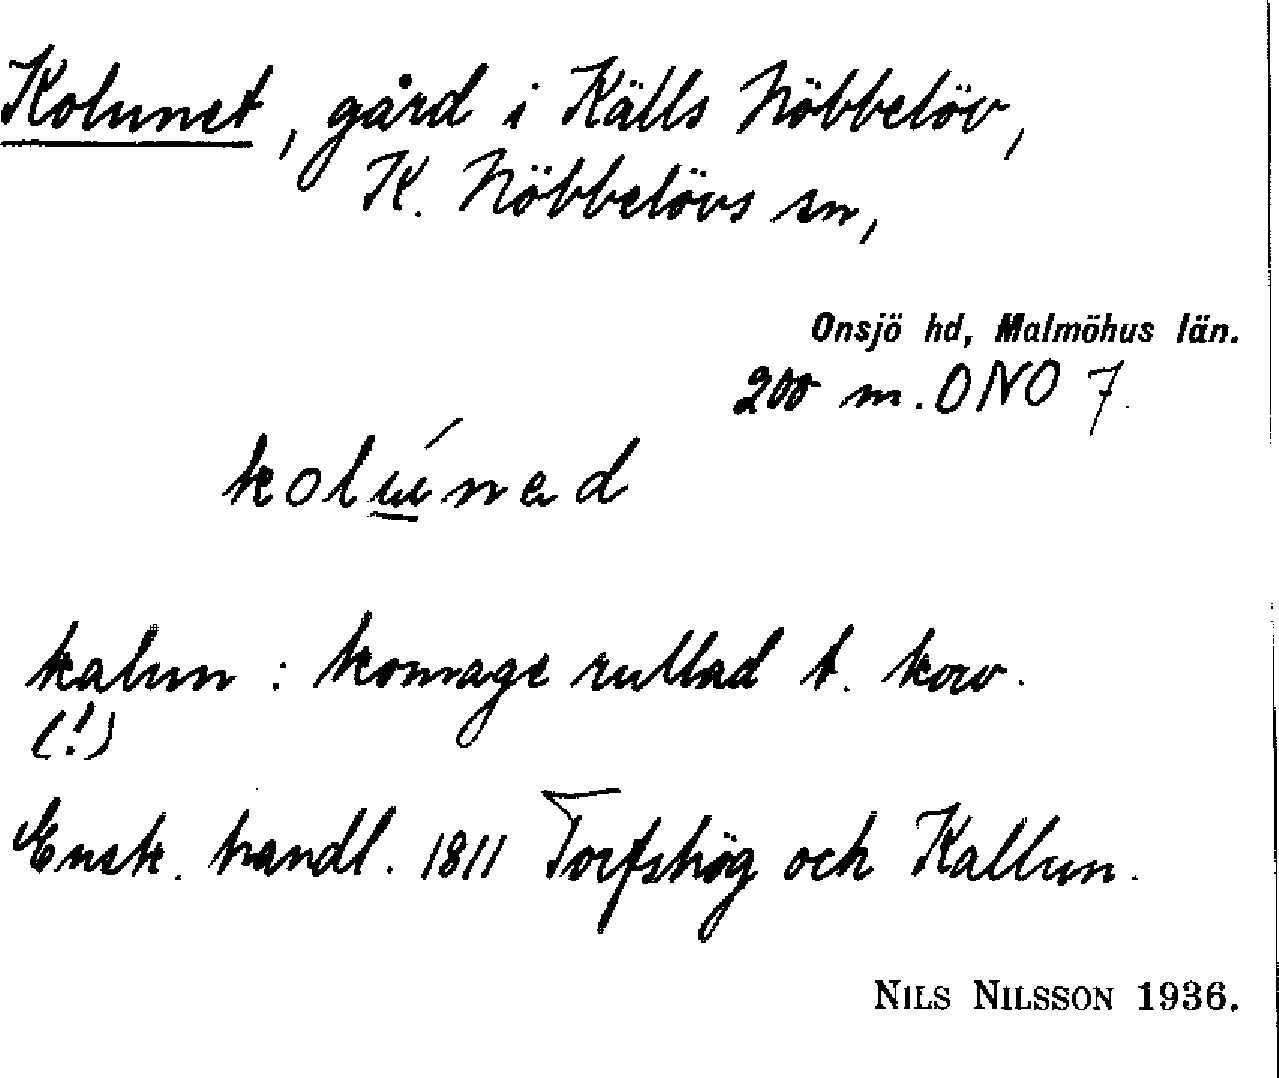 Kolunet, gård i Källs Nöbbelöv,
K. Nöbbelövs sn,
Onsjö hd, Malmöhus län.
200 m. ONO 7.
kalun : komage rullad t. korv.
(!)
Ensk. handl. 1811 Torfshög och Kallun.
NILS NILSSON 1936.